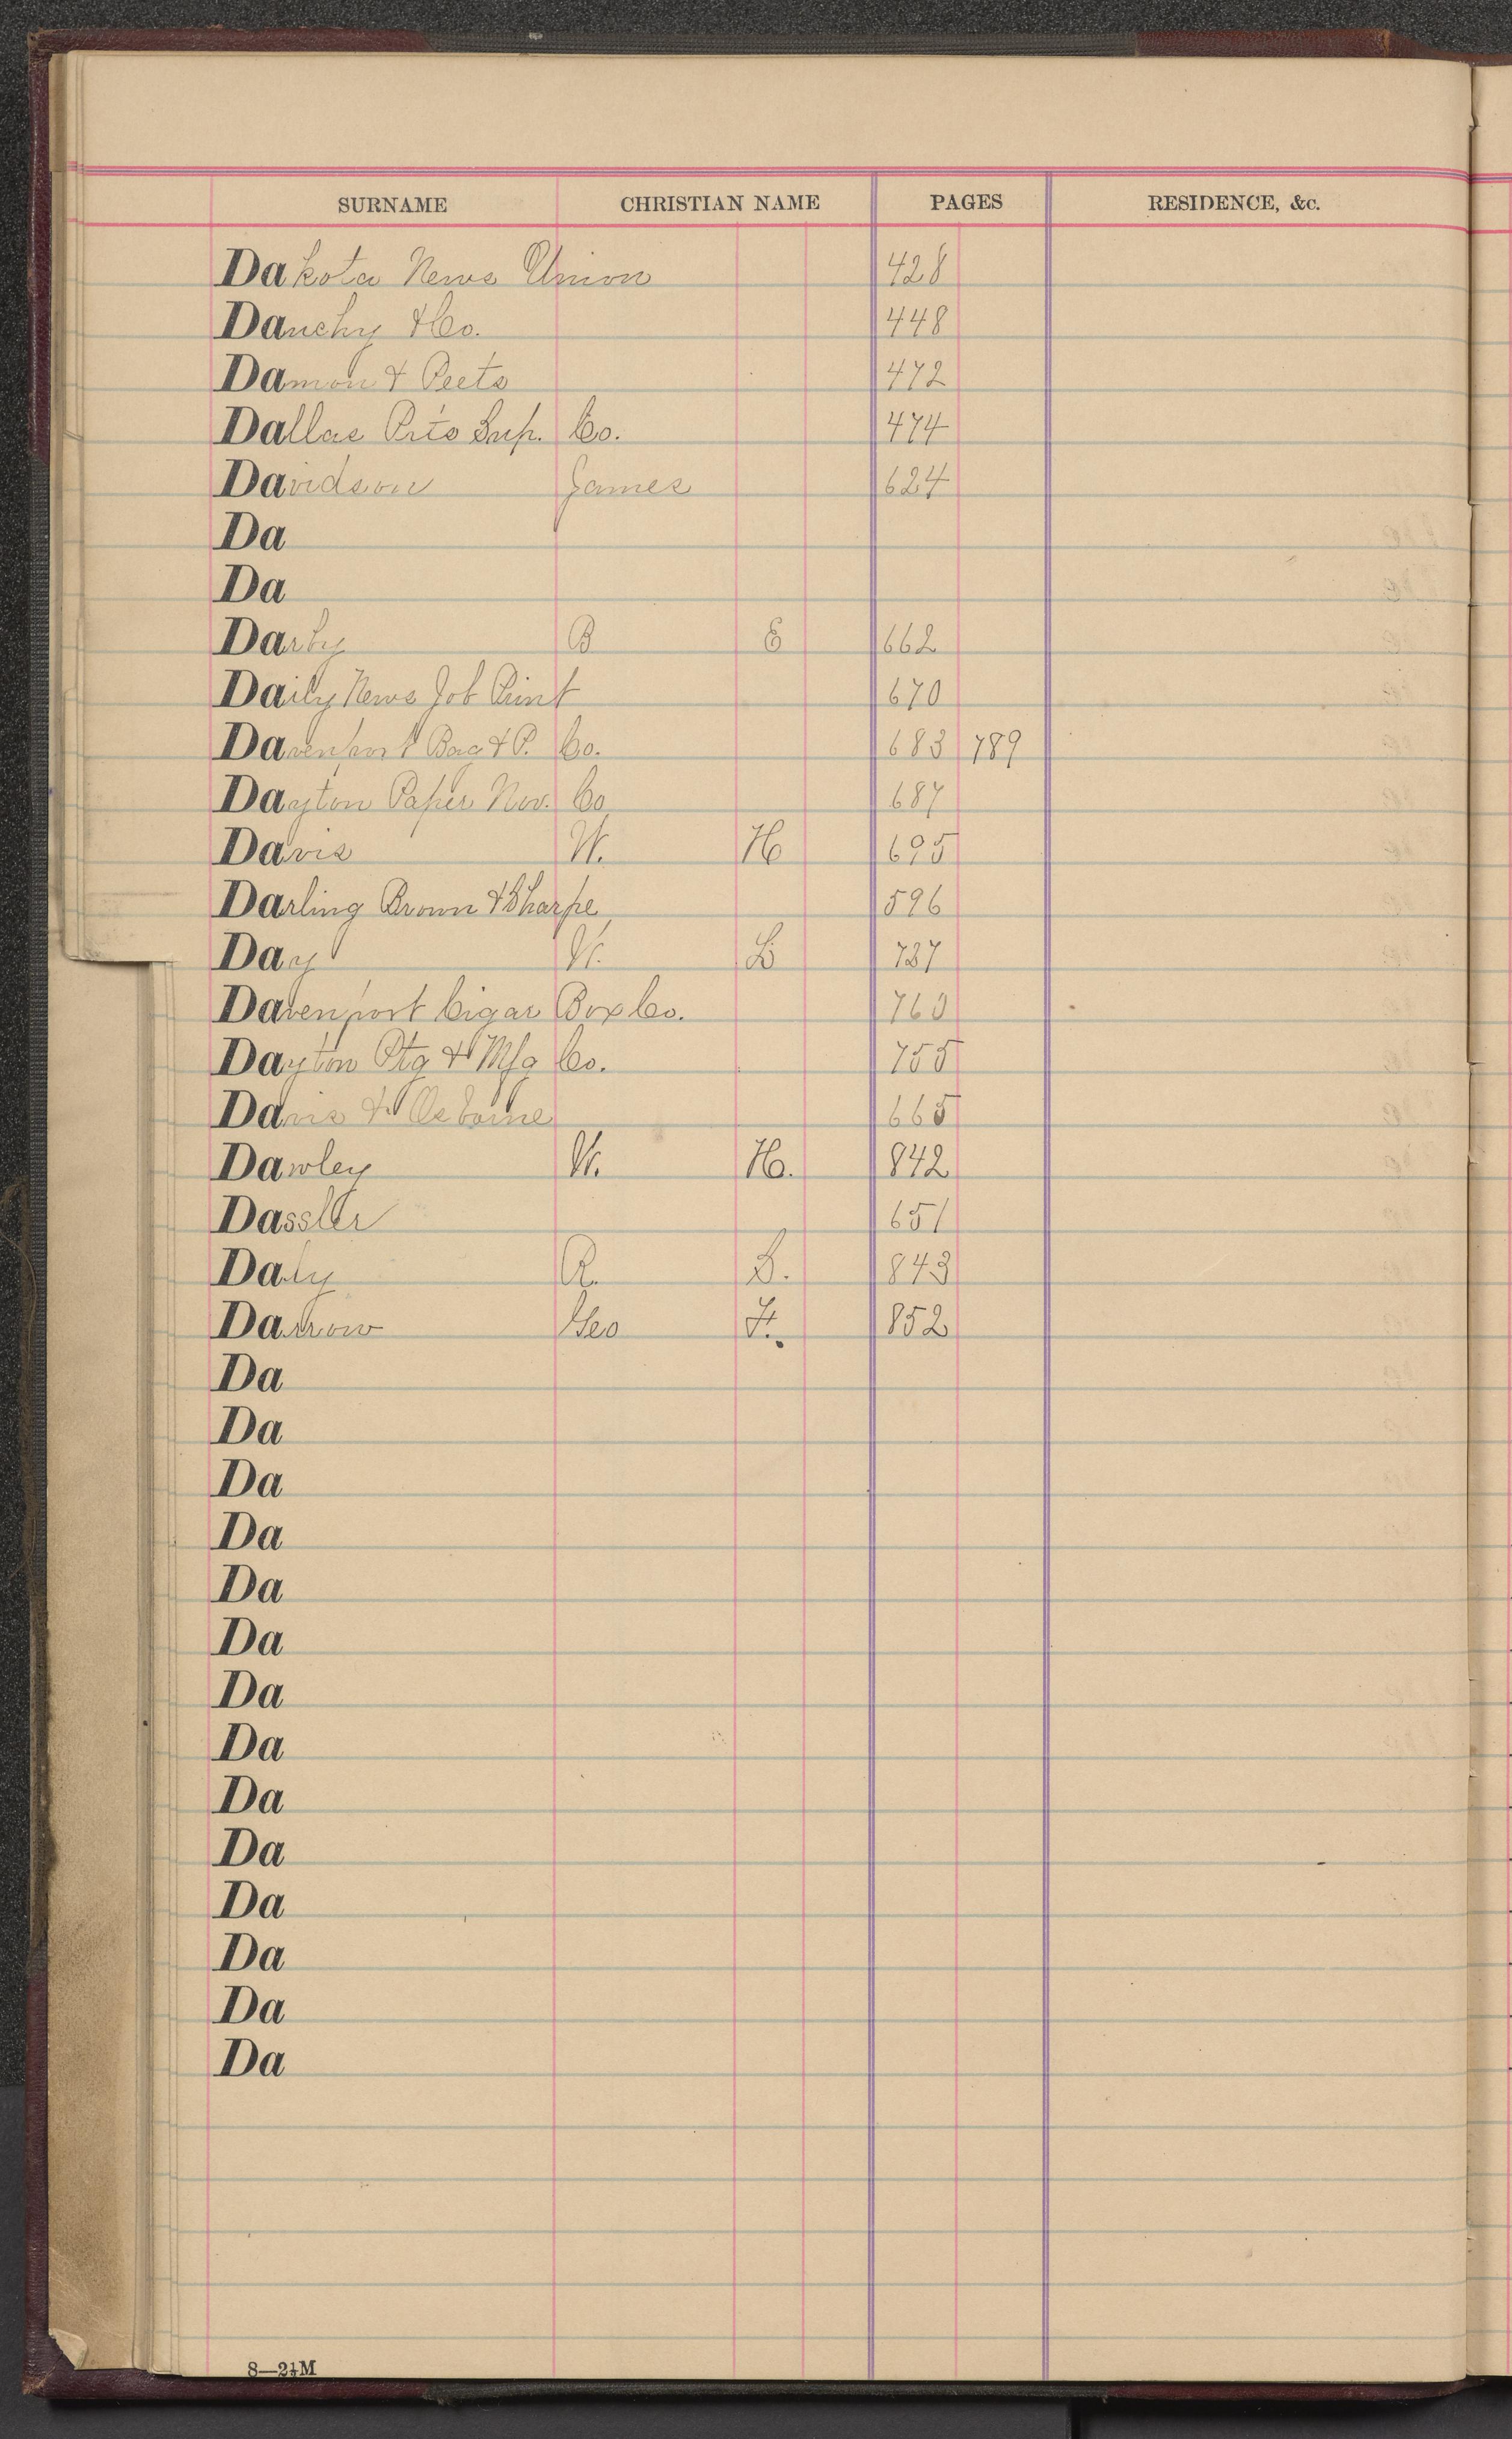 SURNAME CHRISTIAN NAME PAGES RESIDENCE, &c.
Dakota News Union 428
Dauchy & Co. 448
Damon & Peets 472
Dallas Prts Sup. Co. 474
Davidson James 624
Da
Da
Darby B E 662
Daily News Job Print 670
Davenport Bag & P. Co. 683 789
Dayton Paper Nov. Co 687
Davis W. H 695
Darling Brown & Sharpe 596
Day W. L 737
Davenport Cigar Box Co. 760
Dayton Ptg & Mfg Co. 755
Davis & Osborne 665
Dawley W. H. 842
Dassler 651
Daly R. D. 843
Darrow Geo F. 852
Da
Da
Da
Da
Da
Da
Da
Da
Da
Da
Da
Da
Da
Da
8—2½M